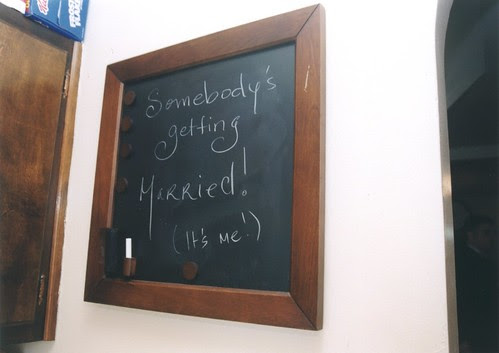 Somebody's
getting
Married!
(It's me!)